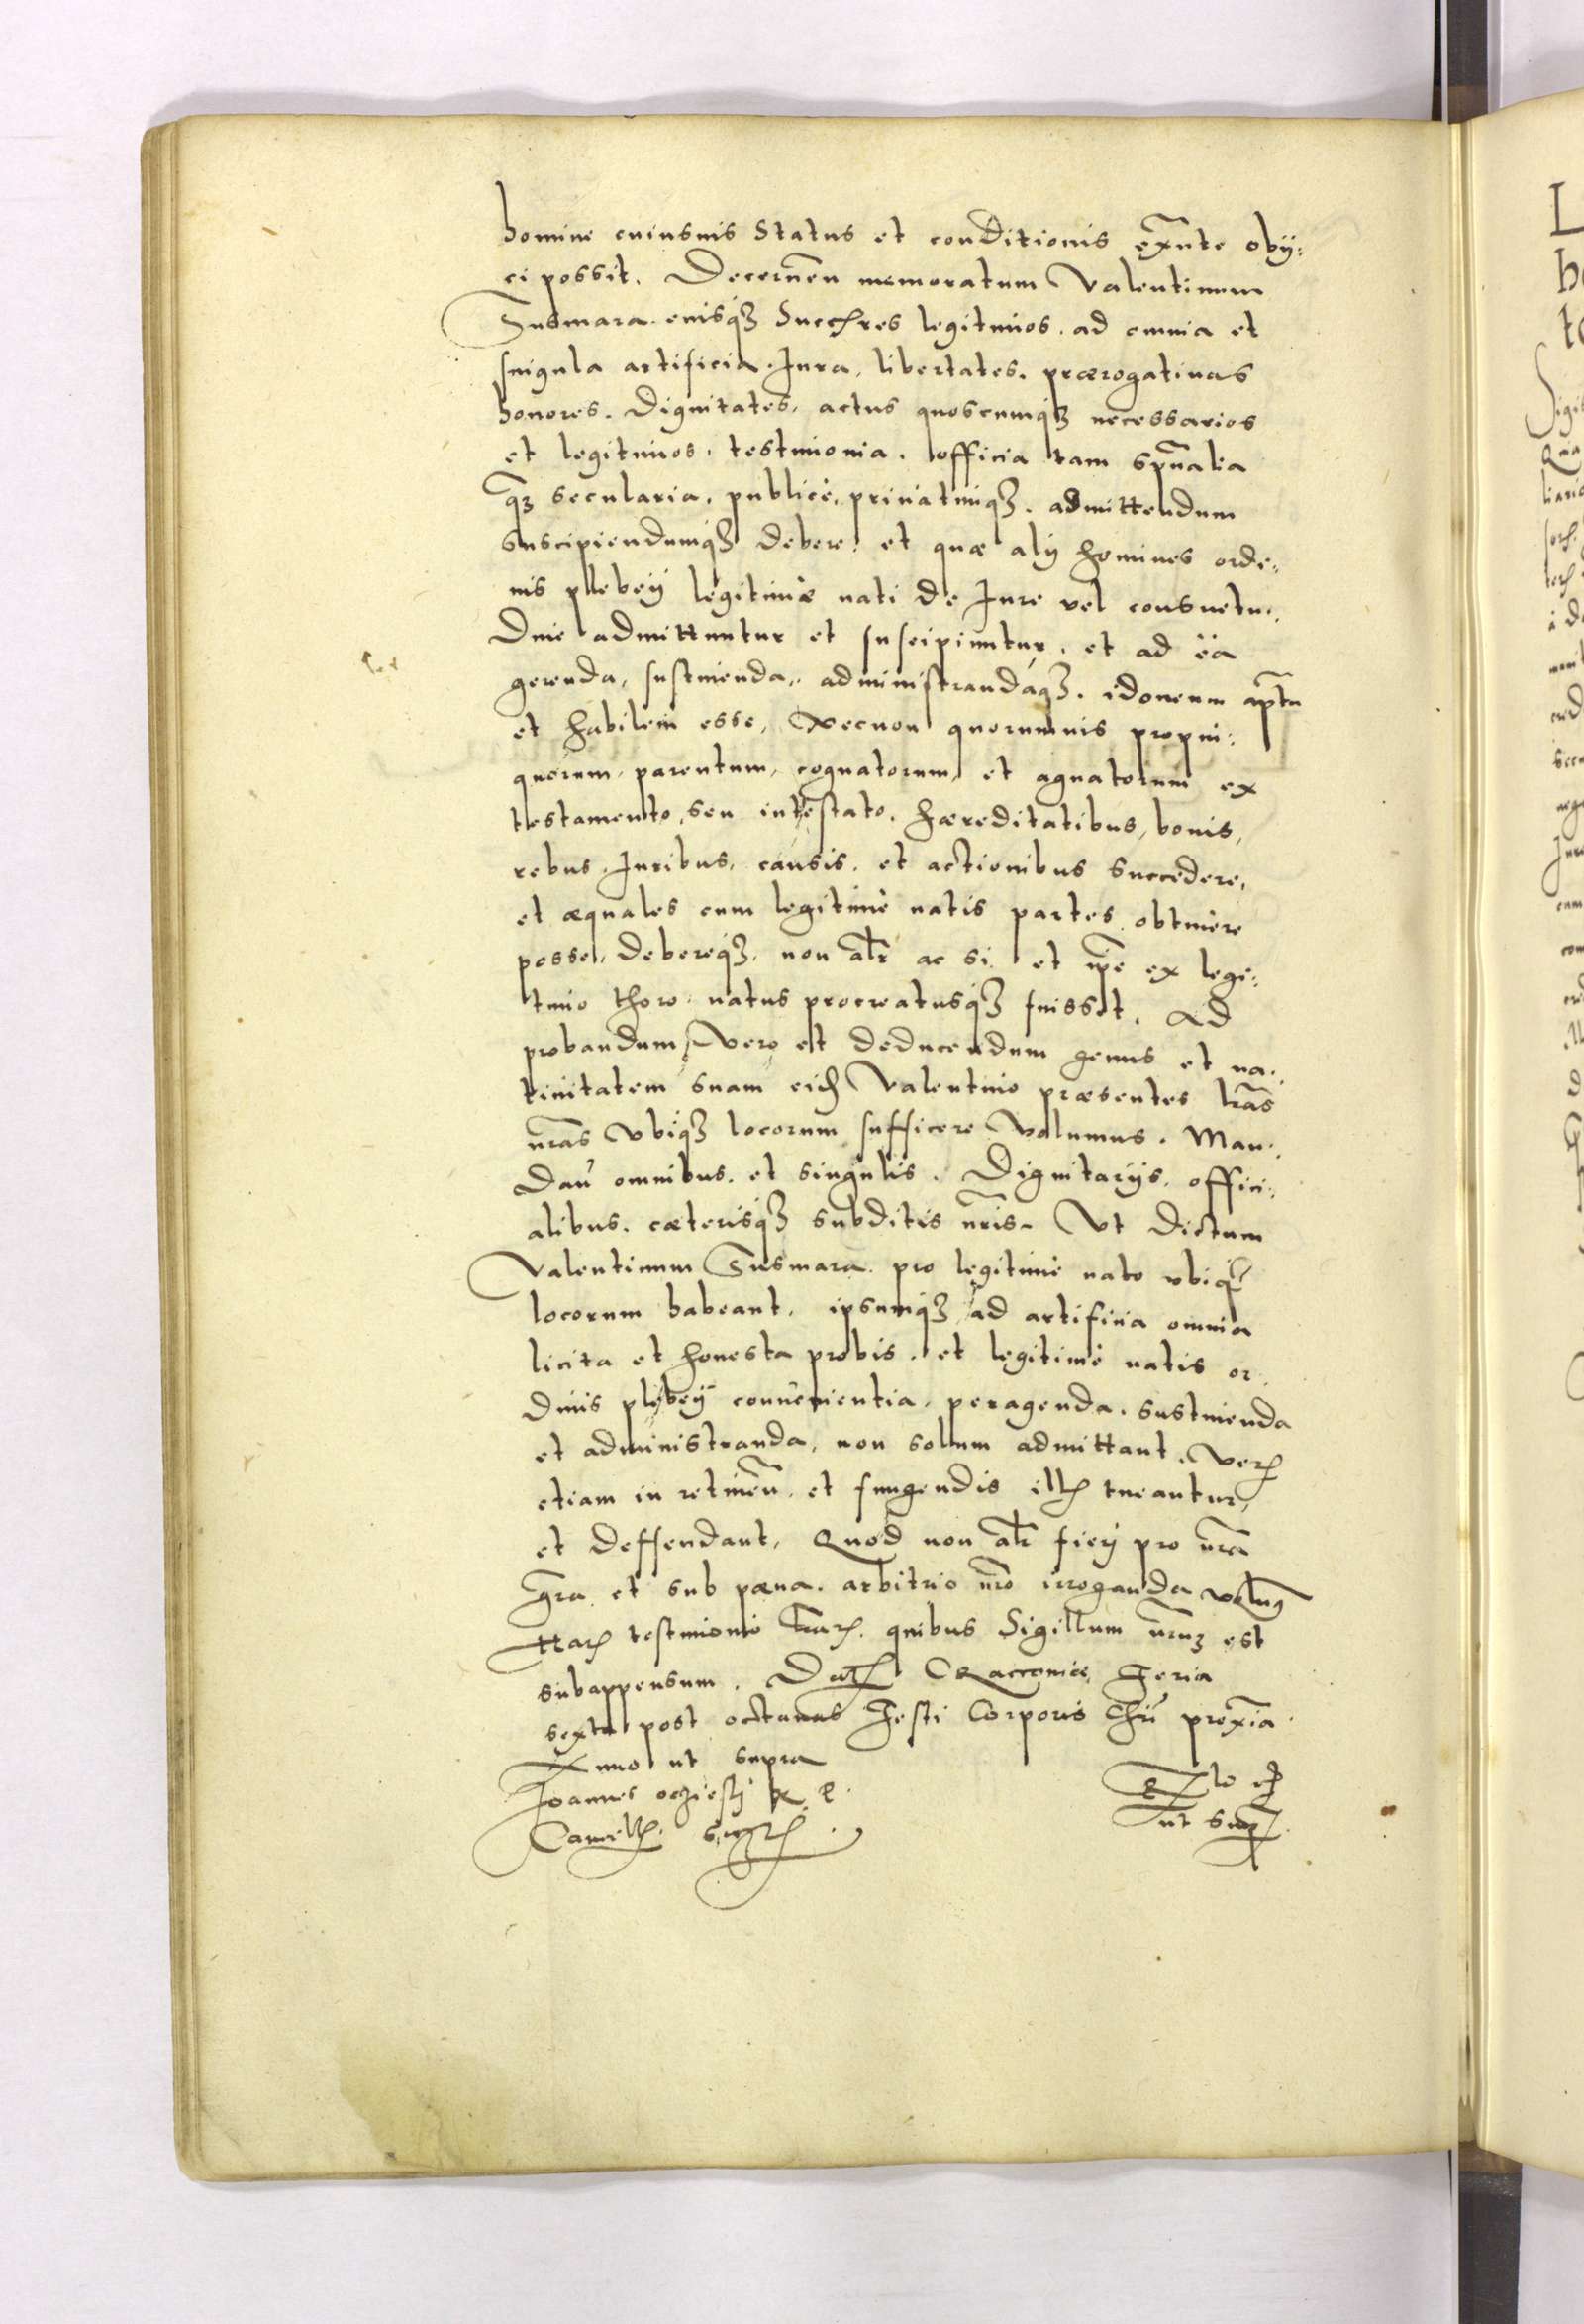 homine cuiusuis Status et conditionis exñte obij:
ci possit. Decerneñ memoratum Valentinum
Susmara. eiusq̃ʒ Succʃres legitimos. ad omnia et
singula artificia. Iura, libertates. prærogatiuas
honores. Dignitates, actus quoscumq̃ʒ necessarios
et legitimos. testimonia. officia tam spũalia
q̃ʒ secularia. publicè, priuatimqʒ. admittendum
suscipiendumq̃ʒ debere: et quæ alij homines orde:
nis plebeij legitimæ nati de Iure vel consuetu:
dine admittuntur et suscipiuntur. et ad ea
gerenda, sustinenda, administrandaqʒ. idoneum aptũ
et habilem esse, Necnon quorumuis propin:
quorum, parentum, cognatorum, et agnatorum ex
testamento, seu intestato. hæreditatibus, bonis,
rebus. Iuribus, causis. et actionibus succedere,
et æquales cum legitimè natis partes obtinere
posse, debereq̃ʒ. non alr̃ ac si et ip̃e ex legi:
timo thoro natus procreatusq̃ʒ fuisset. Ad
probandum vero et deducendum genus et na:
tiuitatem suam eid Valentino præsentes lr̃as
nr̃as vbiq̃ʒ locorum sufficere volumus. Man:
dañ omnibus. et singulis. Dignitarijs. offici:
alibus. cæterisq̃ʒ subditis nr̃is. Vt dictum
Valentinum Susmara. pro legitimè nato vbiq̃
locorum habeant. ipsumq̃ʒ ad artificia omnia
licita et honesta probis. et legitimè natis or:
dinis plebeij conuenientia. peragenda. sustinenda
et administranda, non solum admittant. Verʒ
etiam in retineñ. et fungendis illʒ tueantur,
et deffendant. Quod non alr̃ fierj pro nr̃a
gr̃a et sub pæna. arbitrio nr̃o irroganda
testimonio quibus Sigillum nr̃uʒ est
subappensum. Datʒ CRaccouiæ, Feria
sexta post octauas Festi Corporis Chri proxĩa.
Anno ut supra
Joannes oczieskj R. P.
Cancellʒ.
ut supʒ